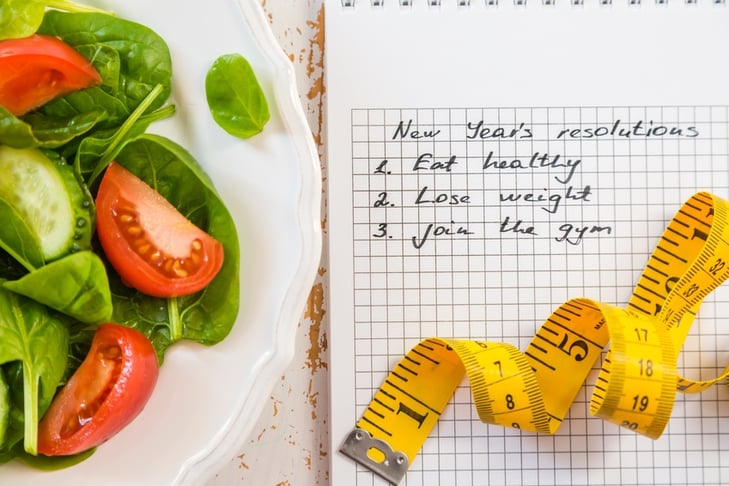 New Year's resolutions
1. Eat healthy
2. Lose weight
3. Join the gym
1
7
8
5
17
18
19
20
32
33